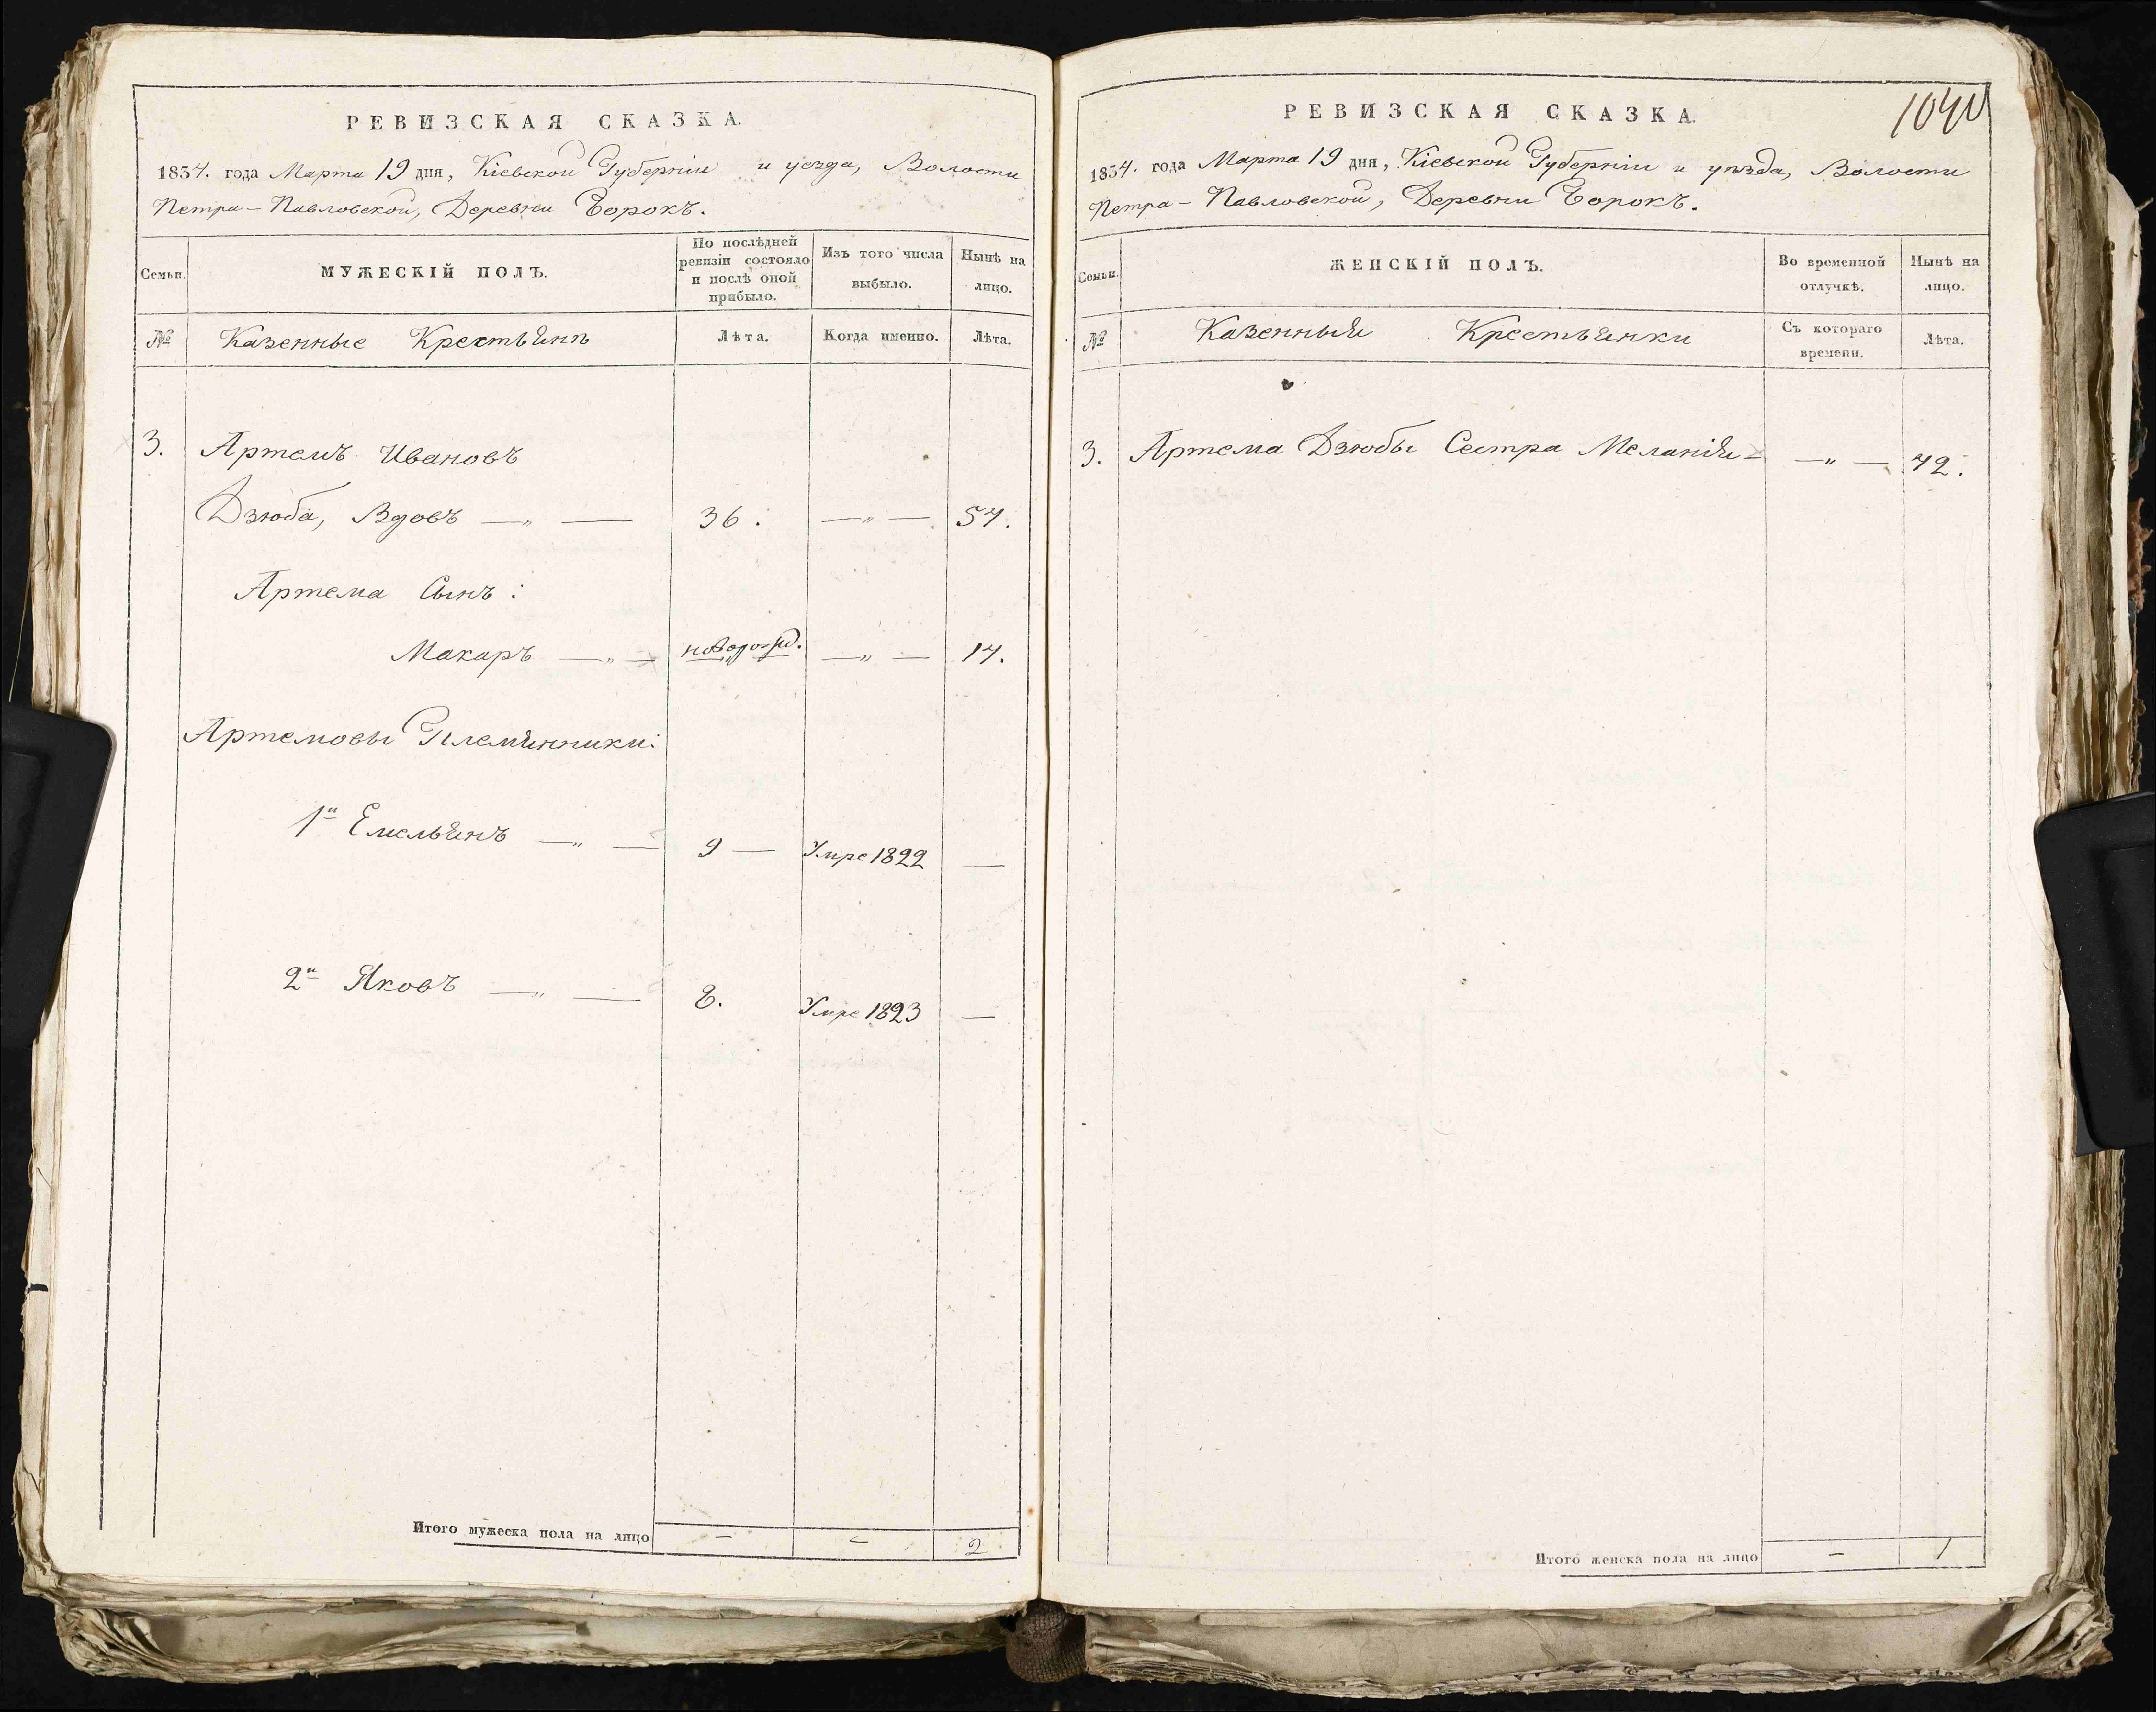 РЕВИЗСКАЯ СКАЗКА.
1834. года Марта 19 дня, Кіевской Губерніи и уезда, Волости
Петра-Павловской, Деревни Борокъ.
Семьи.
МУЖЕСКІЙ ПОЛЪ.
По послѣдней ревизіи состояло и послѣ оной прибыло.
Изъ того числа выбыло.
Нынѣ на лицо.
№
Казенные Крестьяне
Лѣта.
Когда именно.
Лѣта.
3. Артемъ Ивановъ
Дзюба, Вдовъ —„— 36. —„— 54.
Артема Сынъ:
Макаръ —„— новорож. —„— 14.
Артемовы Племянники:
1й Емельянъ —„— 9 — Умре 1822 —
2й Яковъ —„— 8. Умре 1823 —
Итого мужеска пола на лицо — — 2
1040
РЕВИЗСКАЯ СКАЗКА.
1834. года Марта 19 дня, Кіевской Губерніи и уѣзда, Волости
Петра-Павловской, Деревни Борокъ.
Семьи.
ЖЕНСКІЙ ПОЛЪ.
Во временной отлучкѣ.
Нынѣ на лицо.
№
Казенныя Крестьянки
Съ котораго времени.
Лѣта.
3. Артема Дзюбы Сестра Меланія — —„— 42.
Итого женска пола на лицо — 1